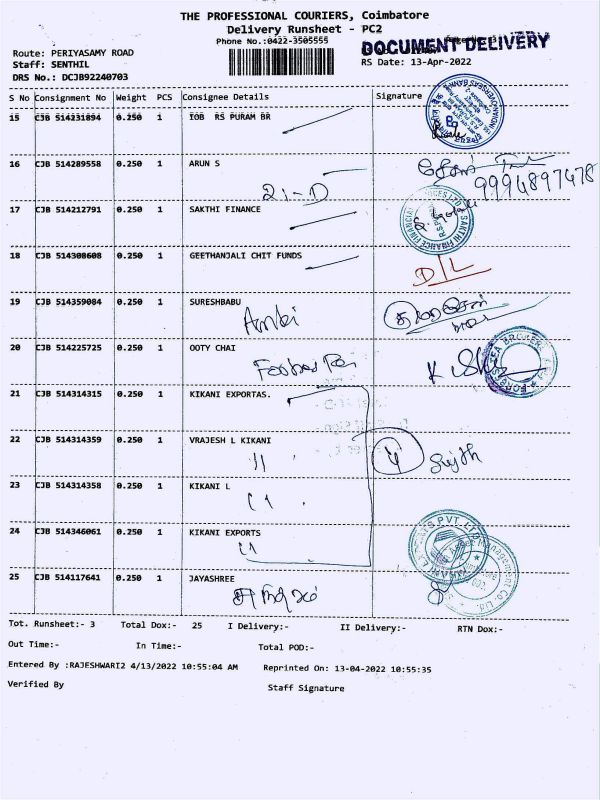 THE PROFESSIONAL COURIERS, Coimbatore
Delivery Runsheet - PC2
Phone No.:0422-3505555
DOCUMENT DELIVERY
Route: PERIYASAMY ROAD
Staff: SENTHIL
RS Date: 13-Apr-2022
DRS No.: DCJB92240703
S No Consignment No Weight PCS Consignee Details Signature
15 CJB 514231894 0.250 1 IOB RS PURAM BR
16 CJB 514289558 0.250 1 ARUN S
21-D
9994897478
17 CJB 514212791 0.250 1 SAKTHI FINANCE
18 CJB 514308608 0.250 1 GEETHANJALI CHIT FUNDS
D/L
19 CJB 514359084 0.250 1 SURESHBABU
20 CJB 514225725 0.250 1 OOTY CHAI
21 CJB 514314315 0.250 1 KIKANI EXPORTAS.
22 CJB 514314359 0.250 1 VRAJESH L KIKANI
4
23 CJB 514314358 0.250 1 KIKANI L
24 CJB 514346061 0.250 1 KIKANI EXPORTS
25 CJB 514117641 0.250 1 JAYASHREE
Tot. Runsheet:- 3 Total Dox:- 25 I Delivery:- II Delivery:- RTN Dox:-
Out Time:- In Time:- Total POD:-
Entered By :RAJESHWARI2 4/13/2022 10:55:04 AM Reprinted On: 13-04-2022 10:55:35
Verified By Staff Signature